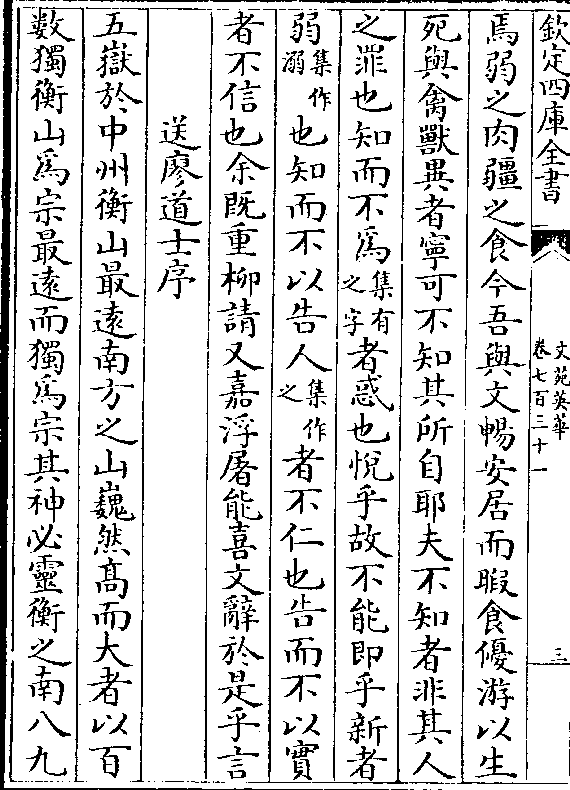 欽定四庫全書
文苑英華
卷七百三十一
三
焉弱之肉彊之食今吾與文暢安居而暇食優游以生
死與禽獸異者寧可不知其所自耶夫不知者非其人
之罪也知而不為集有之字者惑也悅乎故不能即乎新者
弱集作溺也知而不以告人集作之者不仁也告而不以實
者不信也余既重柳請又嘉浮屠能喜文辭於是乎言
送廖道士序
五嶽於中州衡山最遠南方之山巍然髙而大者以百
數獨衡山為宗最遠而獨為宗其神必靈衡之南八九